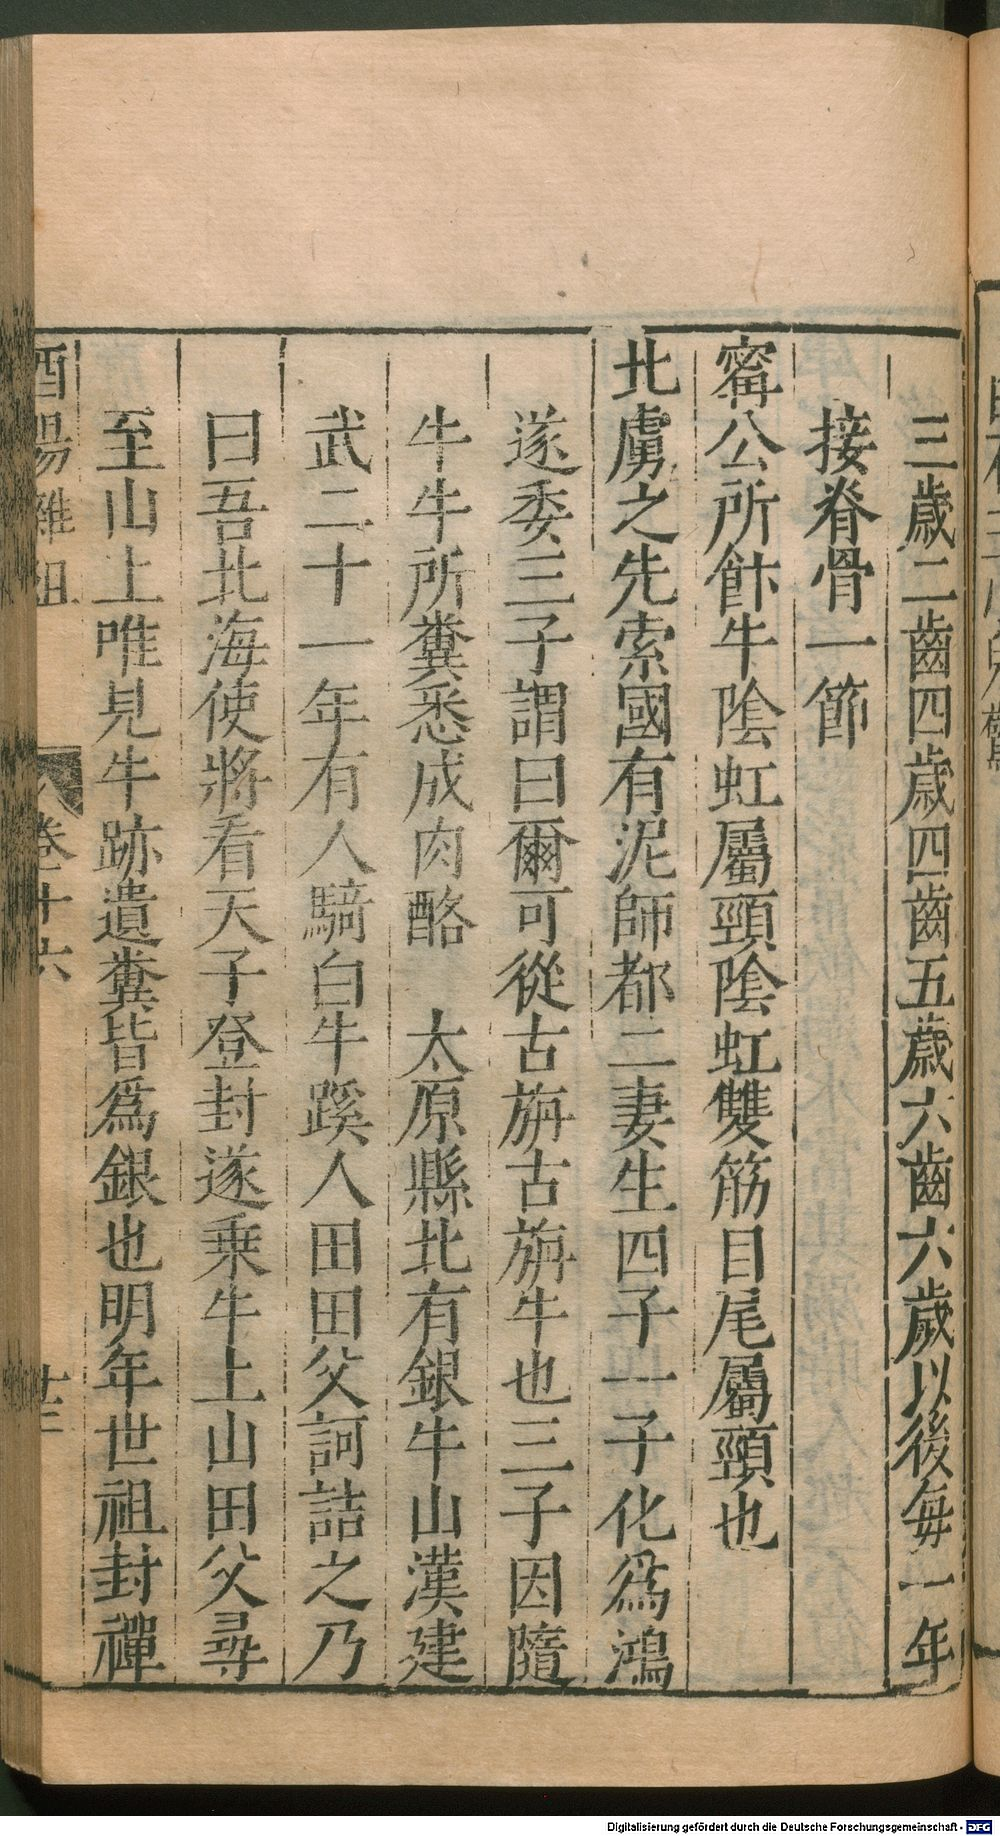 三歲二齒四歲四齒五歲六齒六歲以後每一年
接脊骨一節
甯公所飰牛陰虹屬頸陰虹雙筋目尾屬頸也
北虜之先索國有泥師都二妻生四子一子化為鴻
遂委三子謂曰爾可從古旃古旃牛也三子因隨
牛牛所糞悉成肉酪　太原縣北有銀牛山漢建
武二十一年有人騎白牛蹊人田田父訶詰之乃
曰吾北海使將看天子登封遂乗牛上山田父尋
至山上唯見牛跡遺糞皆為銀也明年世祖封禪
酉陽雜俎　卷十六
Digitalisierung gefördert durch die Deutsche Forschungsgemeinschaft - DFG